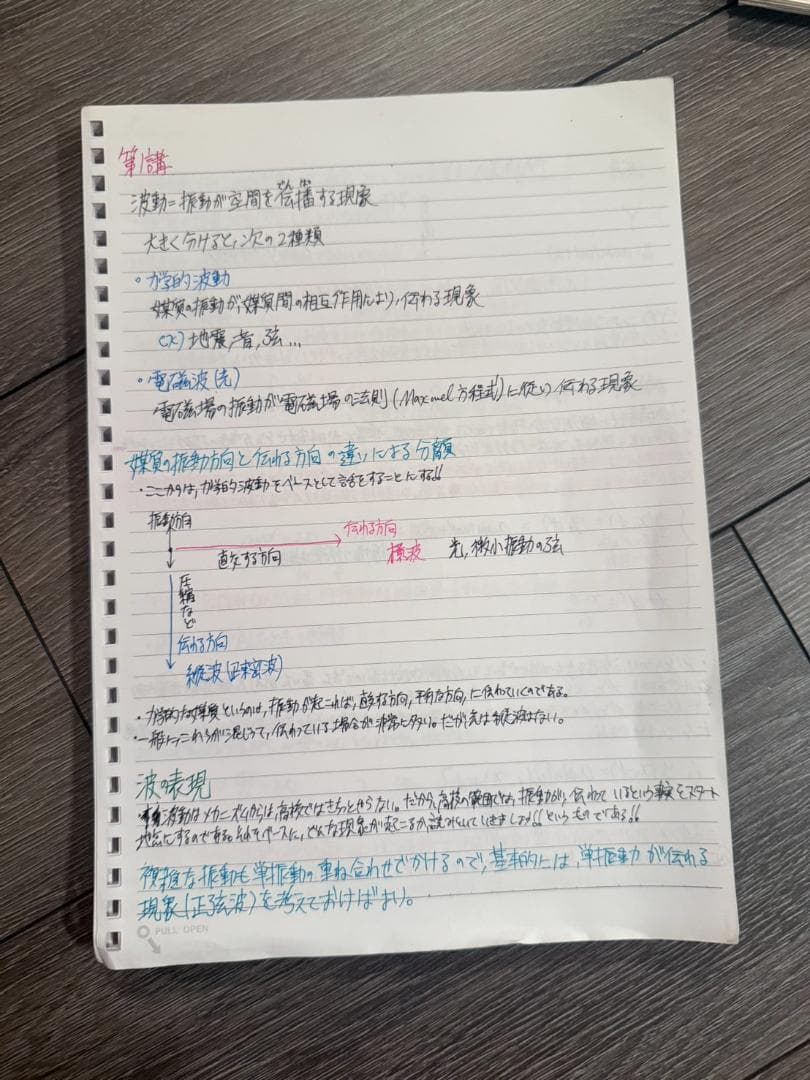 第1講
波動=振動が空間を伝播する現象
大きく分けると,次の2種類
・力学的波動
媒質の振動が,媒質間の相互作用により,伝わる現象
ex) 地震,音,弦...
・電磁波(光)
電磁場の振動が電磁場の法則(Maxmel方程式)に従い伝わる現象
媒質の振動方向と伝わる方向の違いによる分類
・ここからは,力学的波動をベースとして話をすることにする!!
振動方向
伝わる方向
直交する方向 横波 光,微小振動の弦
圧縮など
伝わる方向
縦波(疎密波)
・力学的な媒質というのは,振動が起これば,直交する方向,平行な方向,に伝わっていくのである。
・一般にこれらが混じって,伝わっている場合が非常に多い。だが光は縦波はない。
波の表現
波動はメカニズムからは,高校ではきちっとやらない。だから,高校の範囲では,振動が,伝わっているという事実をスタート
地点にするのである。それをベースに,どんな現象が起こるか読みといていきましょう!!というものである!!
複雑な振動も単振動の重ね合わせでかけるので,基本的には,単振動が伝わる
現象(正弦波)を考えておけばよい。
PULL OPEN